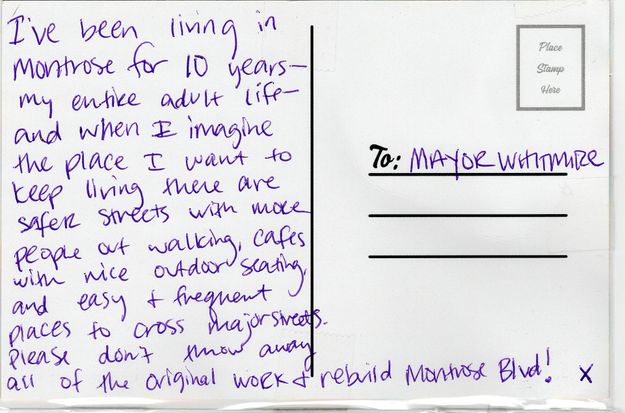 I've been living in
Montrose for 10 years—
my entire adult life—
and when I imagine
the place I want to
keep living there are
safer streets with more
people out walking, cafes
with nice outdoor seating,
and easy & frequent
places to cross major streets.
Please don't throw away
all of the original work & rebuild Montrose Blvd! X
Place
Stamp
Here
To: MAYOR WHITMIRE